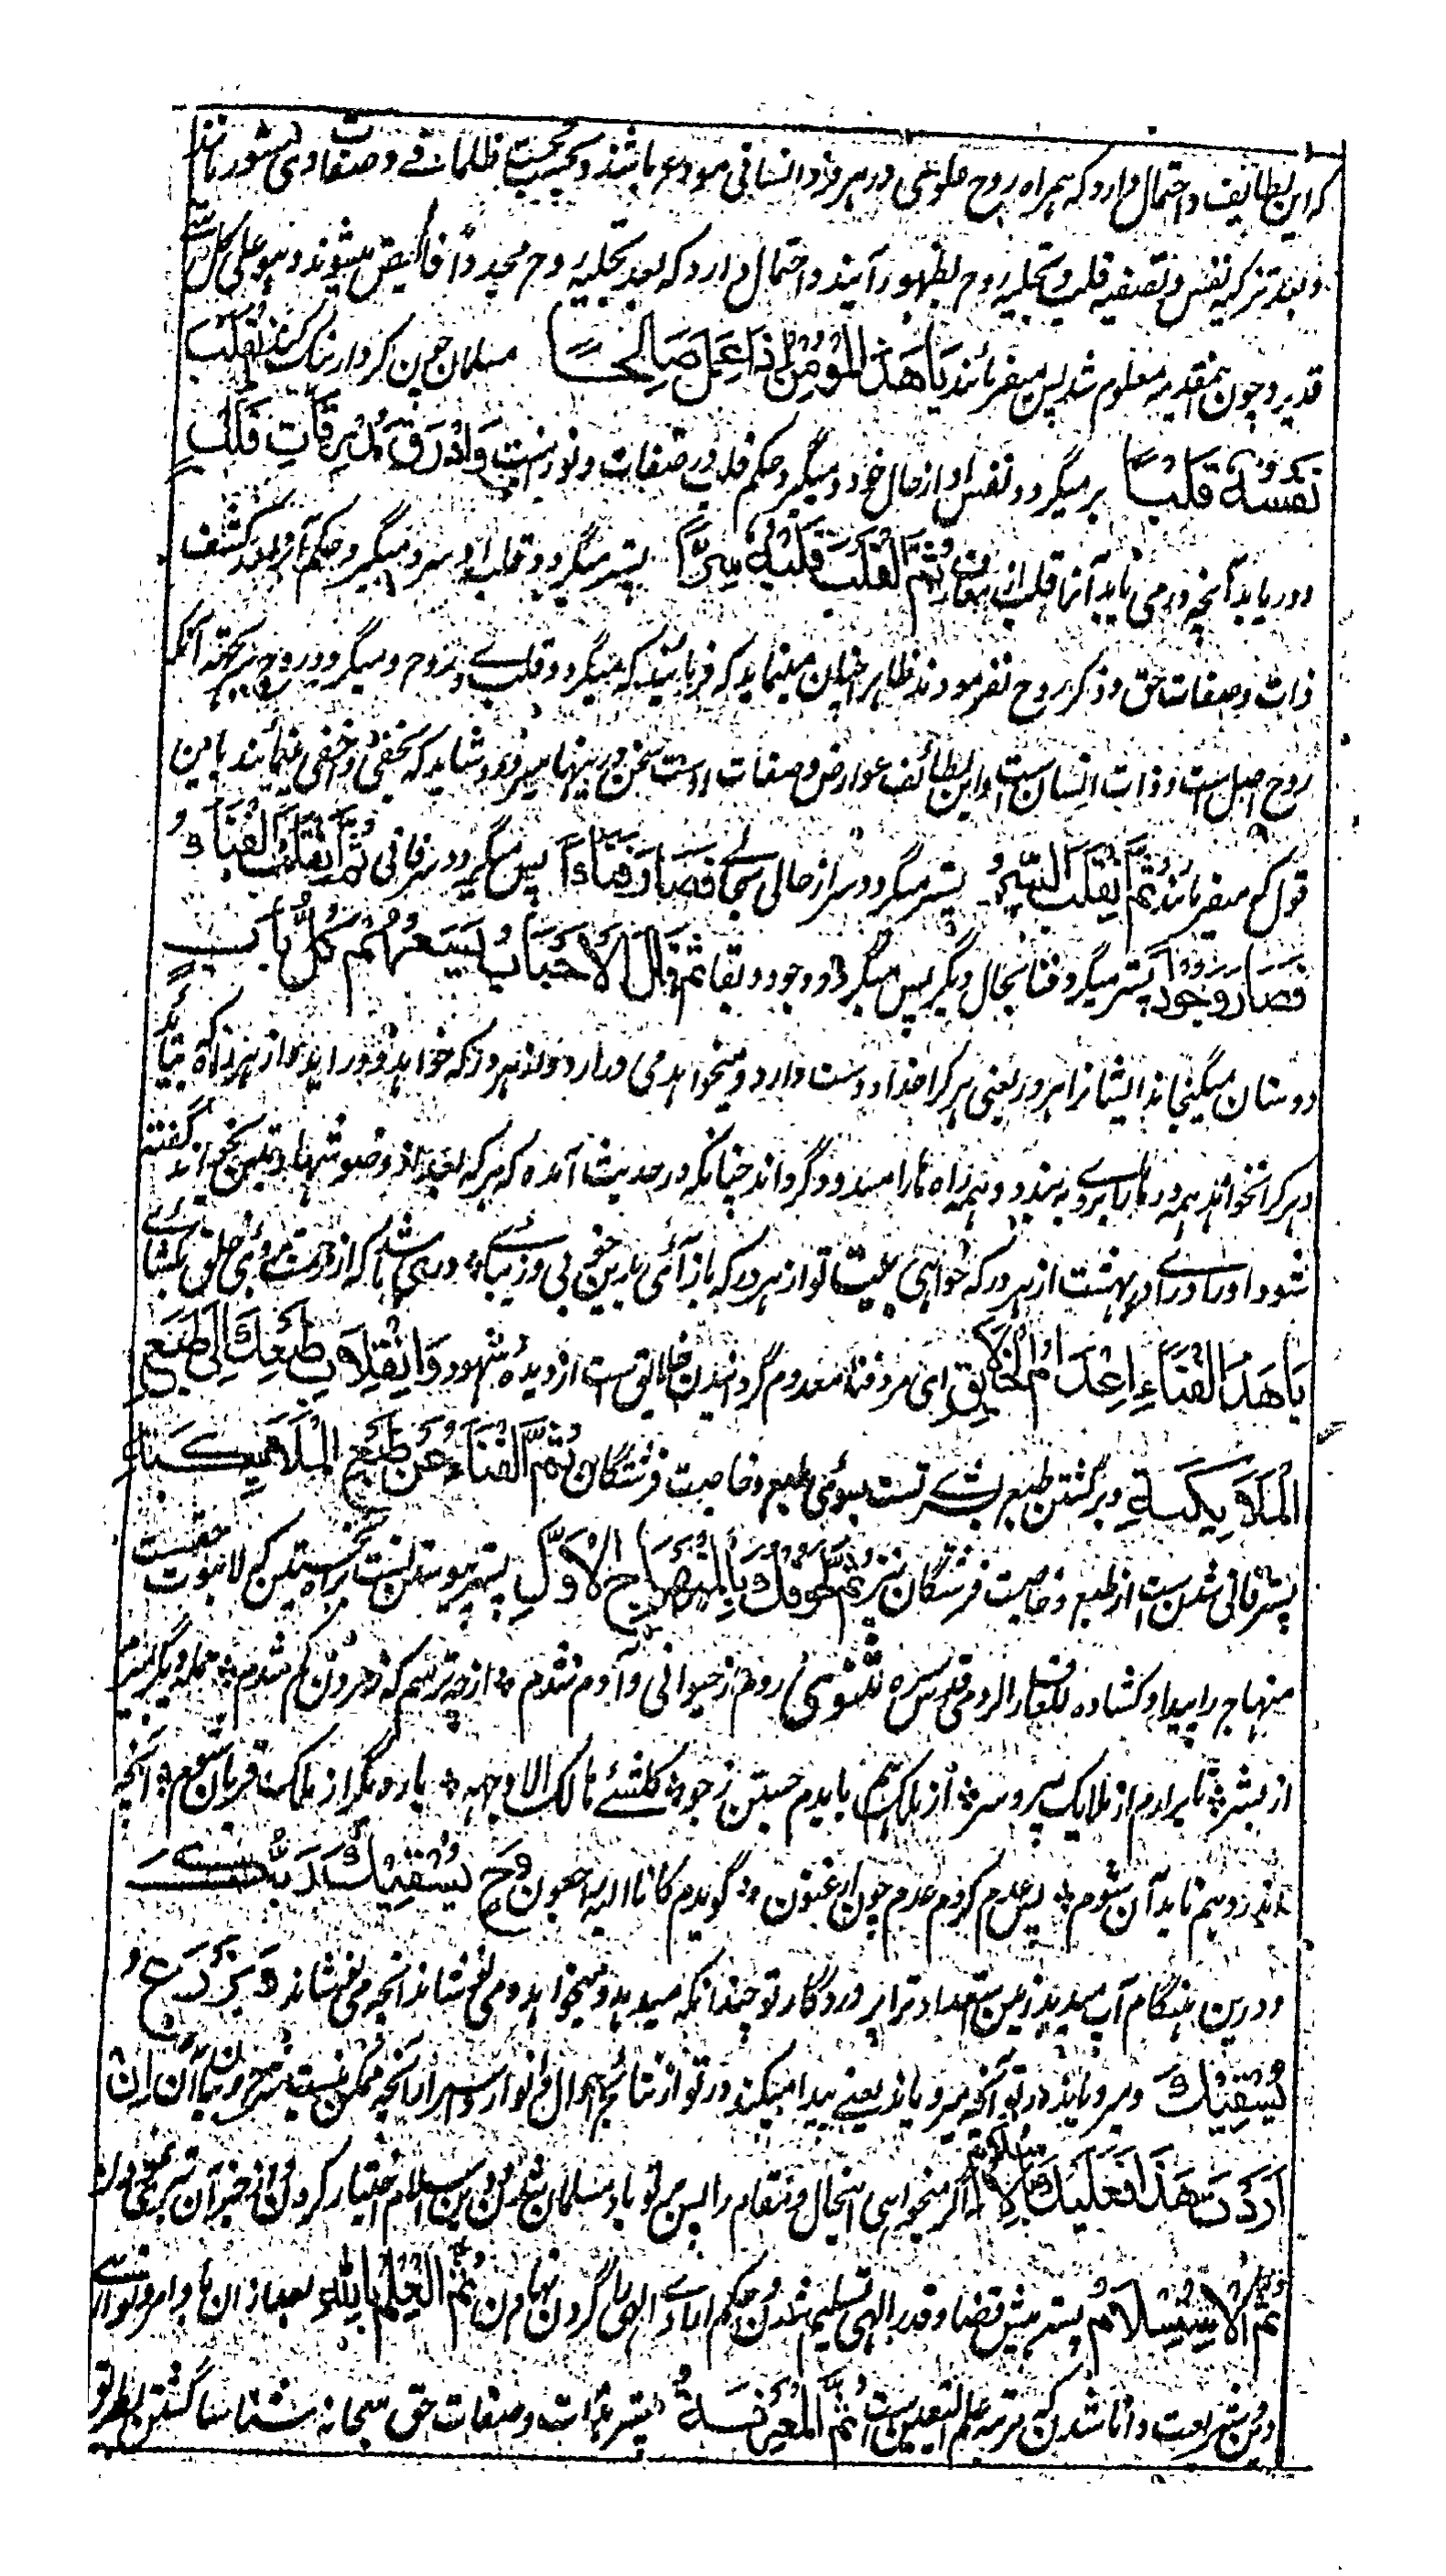 که این لطایف و احتمال دارد که همراه روح علوی در هر فرد انسانی مودع باشند و بحجب ظلمات وصفات مستور مانند
و بعد تزکیه نفس و تصفیه قلب و تجلیه روح بظهور آیند و احتمال دارد که بعد تجلیه روح مجددًا فائض میشوند و هو علی کل شئ
قدیر و چون اینقدر معلوم شد پس میفرمایند یَا هَذَا الْمُؤْمِنُ إِذَا عَمِلَ صَالِحًا مسلمان چون کردار نیک کند اِنْقَلَبَ
نَفْسُهُ قَلْبًا بر میگردد نفس او از حال خود و میگیرد حکم قلب در صفات و نورانیت وَاَدْرَقَ مُدْرِكَاتِ قَلْبٍ
و دریابد آنچه در می یابد آنرا قلب از معارف ثُمَّ انْقَلَبَ قَلْبُهُ سِرًّا پستر میگردد قلب او سر و میگیرد حکم آنرا در کشف
ذات و صفات حق و ذکر روح نفرمودند ظاهر چنان مینماید که فرمایند که میگردد قلب روح و میگردد روح سر بجهت آنکه
روح اصل است و ذات انسانست و این لطائف عوارض و صفات اوست سخن در اینها میرود و شاید که بخفی و اخفی نمایند باین
قول که میفرمایند ثُمَّ انْقَلَبَ السِّرُّ پستر میگردد سر از حالی بحالی فَصَارَ فَنَاءً پس میگردد سر فانی ثُمَّ انْقَلَبَ الْفَنَاءُ
فَصَارَ وُجُودًا پستر میگردد فنا بحال دیگر پس میگردد وجود و بقا ثُمَّ قَالَ الْأَحْبَابُ يَسَعُهُمْ كُلُّ بَابٍ
دوستان میگنجاند ایشانرا هر در یعنی هر کرا خدا دوست دارد و میخواهد می در آرد او را از هر در که خواهد و در آید او از هر راه که بیاید
و هر کرا نخواهد همه درها بروی به بندد و همه راه ها را مسدود گرداند چنانکه در حدیث آمده که هر که بعد از وضو شهادتین بخواند گفته
شود او را درآی در بهشت از هر در که خواهی بیت تو از هر در که باز آئی بدین خوبی و زیبائی در می باشد که از رحمت بروی خلق بکشائی
یَا هَذَا الْفَنَاءُ إِعْدَامُ الْخَلَائِقِ ای مرد فنا معدوم گردانیدن خلایق ست از دیده شهود وَانْقِلَابُ طَبْعِكَ إِلَى طَبْعِ
الْمَلَائِكَةِ و برگشتن طبع بشریتست بسوئے طبع و خاصیت فرشتگان ثُمَّ الْفَنَاءُ عَنْ طَبْعِ الْمَلَائِكَةِ
پستر فانی شدن ست از طبع و خاصیت فرشتگان نیز ثُمَّ لُحُوقُكَ بِالْمِنْهَاجِ الْأَوَّلِ پستر پیوستن تست براه نخستین که لاهوت حقیقت
منهاج راه پیدا و کشاده للعطار الرومی قدس سره مثنوی مردم از حیوانی و آدم شدم ؞ از چه ترسم که ز مردن کم شدم ؞ حمله دیگر بمیرم
از بشر ؞ تا برآرم از ملایک پر و سر ؞ از ملک هم بایدم جستن ز جو ؞ کل شئے هالک الا وجهه ؞ بار دیگر از ملک قربان شوم ؞ آنچه
اندر وهم ناید آن شوم ؞ پس عدم گردم عدم چون ارغنون ؞ گویدم کانا الیه راجعون وَحِ يَسْقِيكَ رَبُّكَ
و درین هنگام آب میدهد زمین استعداد ترا پروردگار تو چندانکه میدهد و میخواهد و می نشاند آنچه می نشاند وَيَزْرَعُ
فِيكَ و میرویاند در تو آنچه میرویاند یعنے پیدا میکند در تو از نتائج احوال و انوار و اسرار آنچه ممکن نیست شرح و بیان آن إِنْ
أَرَدْتَ هَذَا فَعَلَيْكَ بِالْإِسْلَامِ اگر میخواهی اینحال و مقام را پس بر تو باد مسلمان شدن و دین اسلام اختیار کردن
ثُمَّ الْاِسْتِسْلَامُ پستر پیش قضا و قدر الهی تسلیم شدن و حکم الهی را گردن نهادن ثُمَّ الْعِلْمُ بِاللهِ بعد از آن باوامر و نواهی
دین و شریعت دانا شدن که مرتبه علم الیقین ست ثُمَّ الْمَعْرِفَةُ پستر بذات و صفات حق سبحانه شناسا گشتن